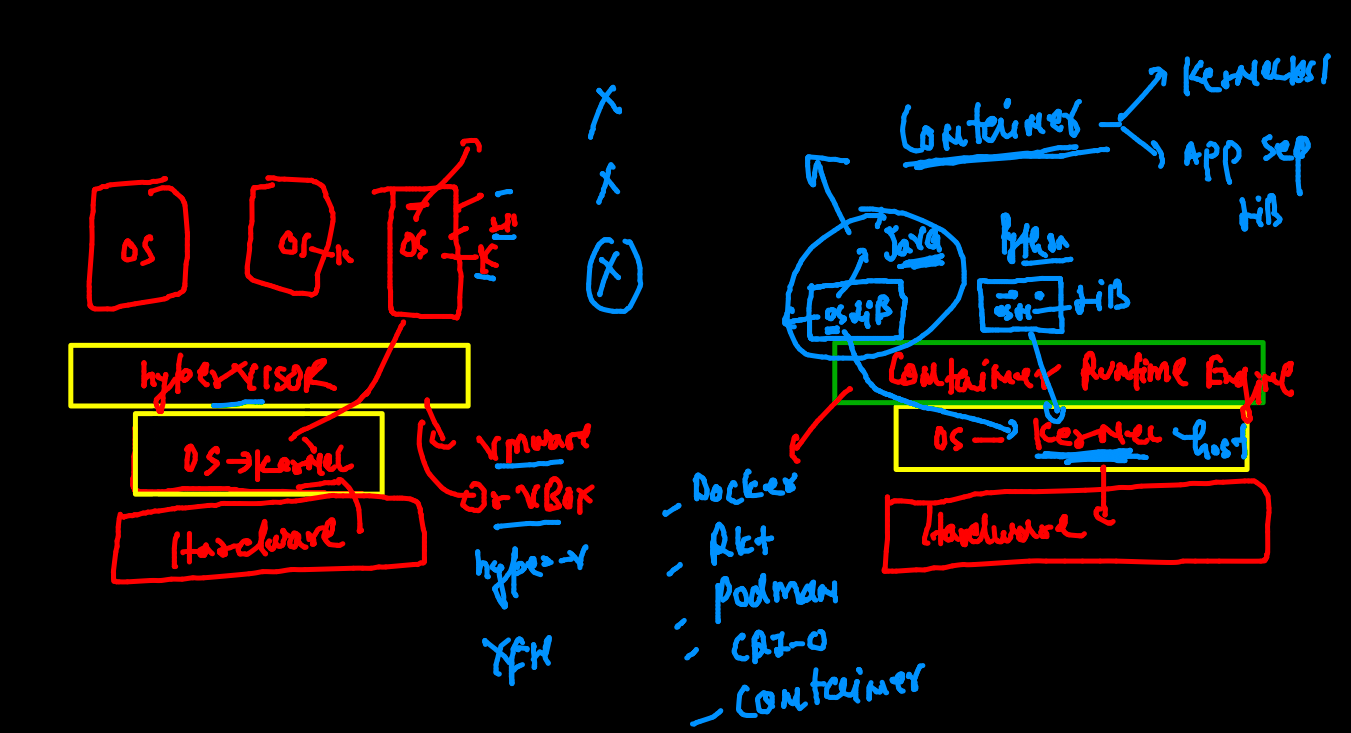 OS
OS-K
OS
K
hypervisor
OS→Kernel
Hardware
vmware
Or VBox
hyper-v
XEN
X
X
X
Container
App sep
LiB
Java
Python
OS LiB
LiB
Container Runtime Engine
OS - Kernel - host
Hardware
Docker
Rkt
podman
CRI-O
Container